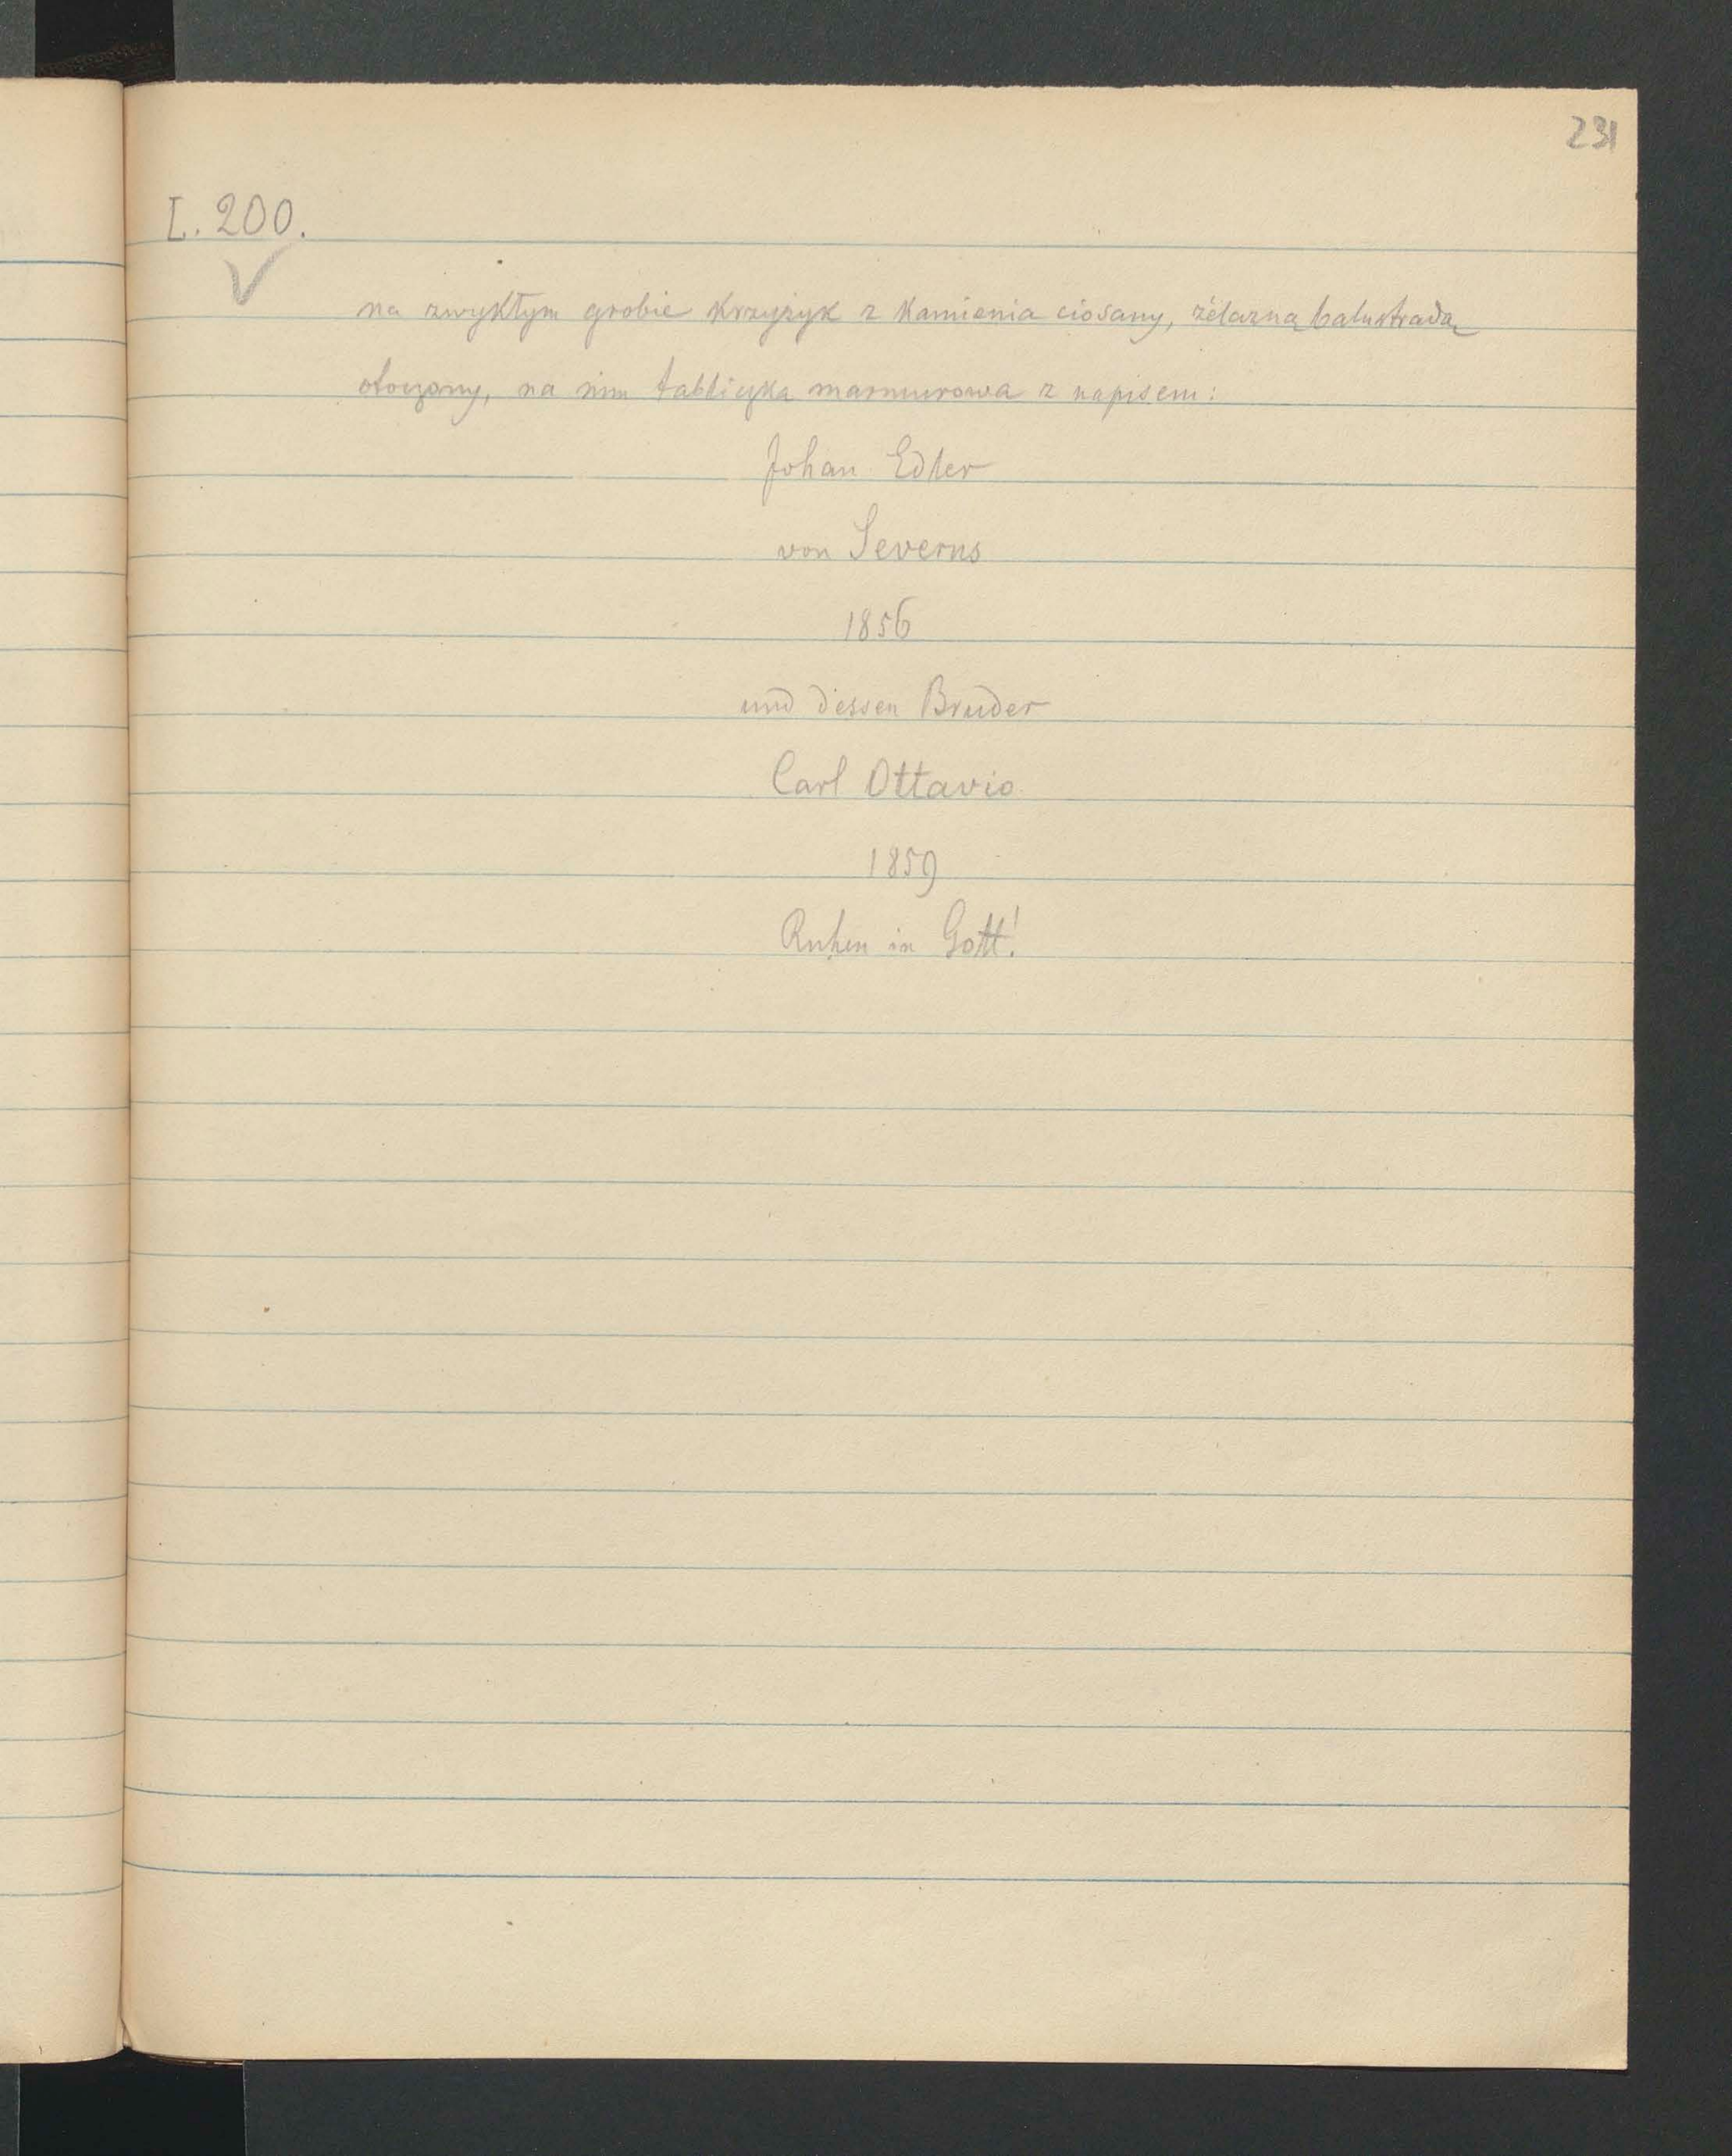 231
L. 200.
na zwykłym grobie krzyżyk z kamienia ciosany, żelazną balustradą
otoczony, na nim tabliczka marmurowa z napisem:
Johan Edler
von Severus
1856
und dessen Bruder
Carl Ottavio
1859
Ruhen in Gott!